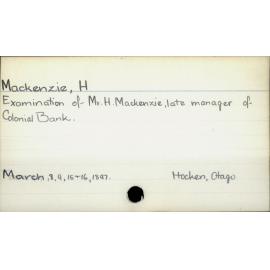 Mackenzie, H
Examination of Mr. H. Mackenzie, late manager of
Colonial Bank.
March, 8, 9, 15+16, 1897. Hocken, Otago